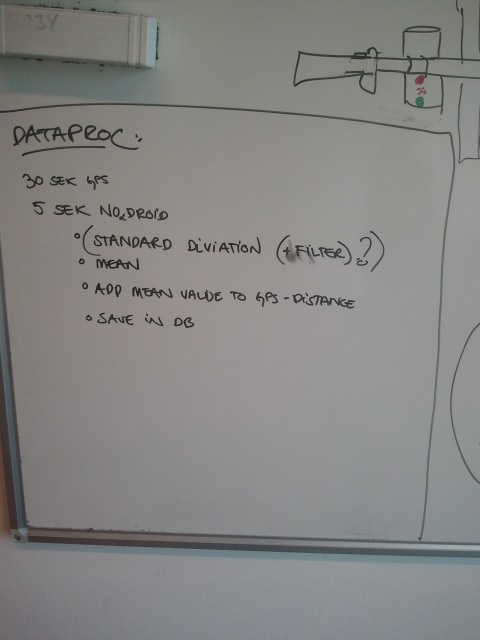 DATAPROC:
30 SEK GPS
5 SEK NOxDROID
(STANDARD DIVIATION (+ FILTER)?)
MEAN
ADD MEAN VALUE TO GPS-DISTANCE
SAVE IN DB